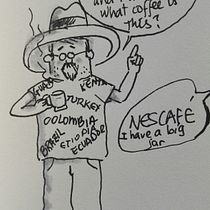 what coffee is
this?
KENYA
TURKEY
COLOMBIA
BRAZIL
ETIOPIA
ECUADOR
NESCAFÉ
I have a big
jar